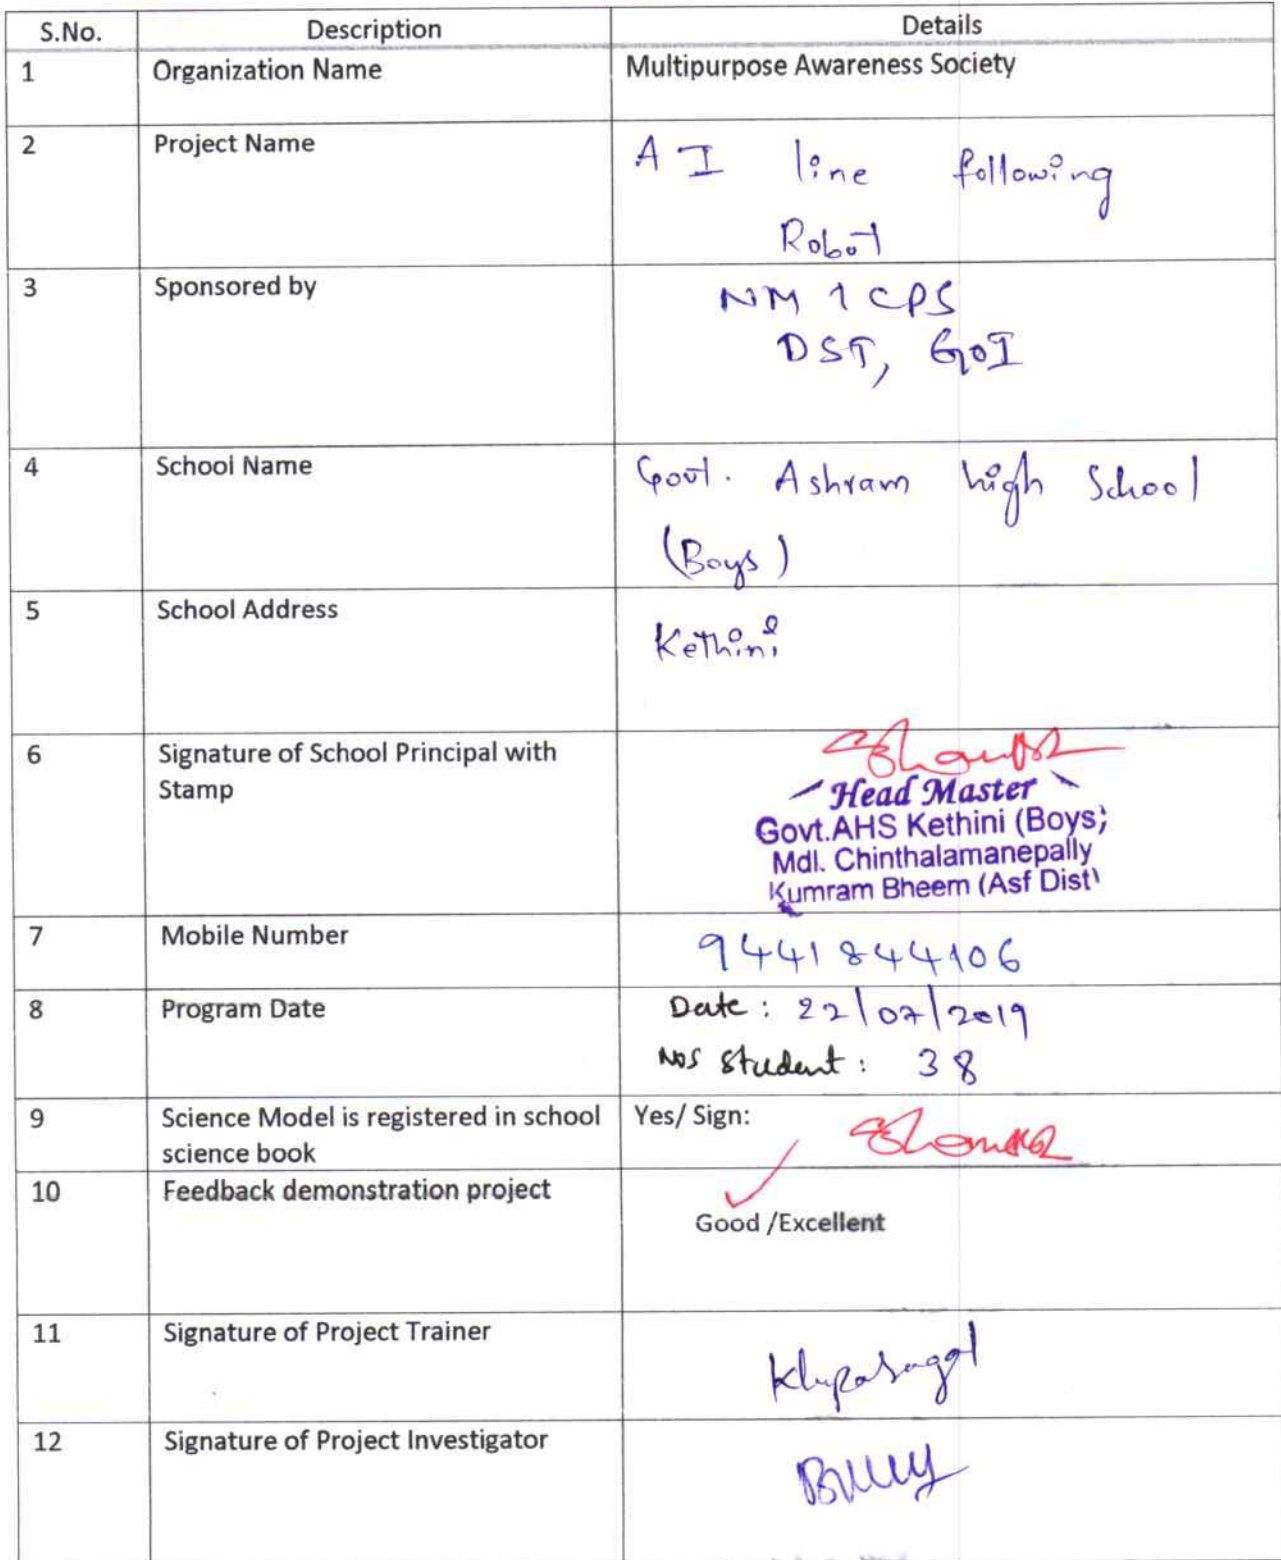 S.No. Description Details
1 Organization Name Multipurpose Awareness Society
2 Project Name AI line following
Robot
3 Sponsored by NM 1 CPS
DST, GoI
4 School Name Govt. Ashram high School
(Boys)
5 School Address Kethini
6 Signature of School Principal with
Stamp
Head Master
Govt.AHS Kethini (Boys)
Mdl. Chinthalamanepally
Kumram Bheem (Asf Dist)
7 Mobile Number 9441844106
8 Program Date Date : 22/07/2019
Nos Student : 38
9 Science Model is registered in school Yes/ Sign:
science book
10 Feedback demonstration project
Good /Excellent
11 Signature of Project Trainer
12 Signature of Project Investigator